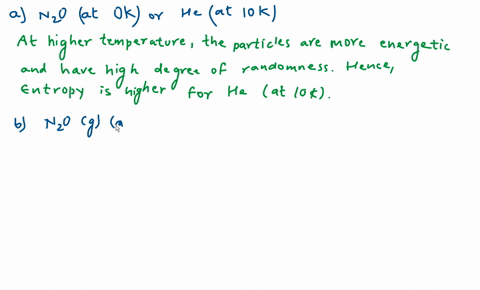 a) N₂O (at 0K) or He (at 10K)
At higher temperature, the particles are more energetic
and have high degree of randomness. Hence,
Entropy is higher for He (at 10K).
b) N₂O (g) (a